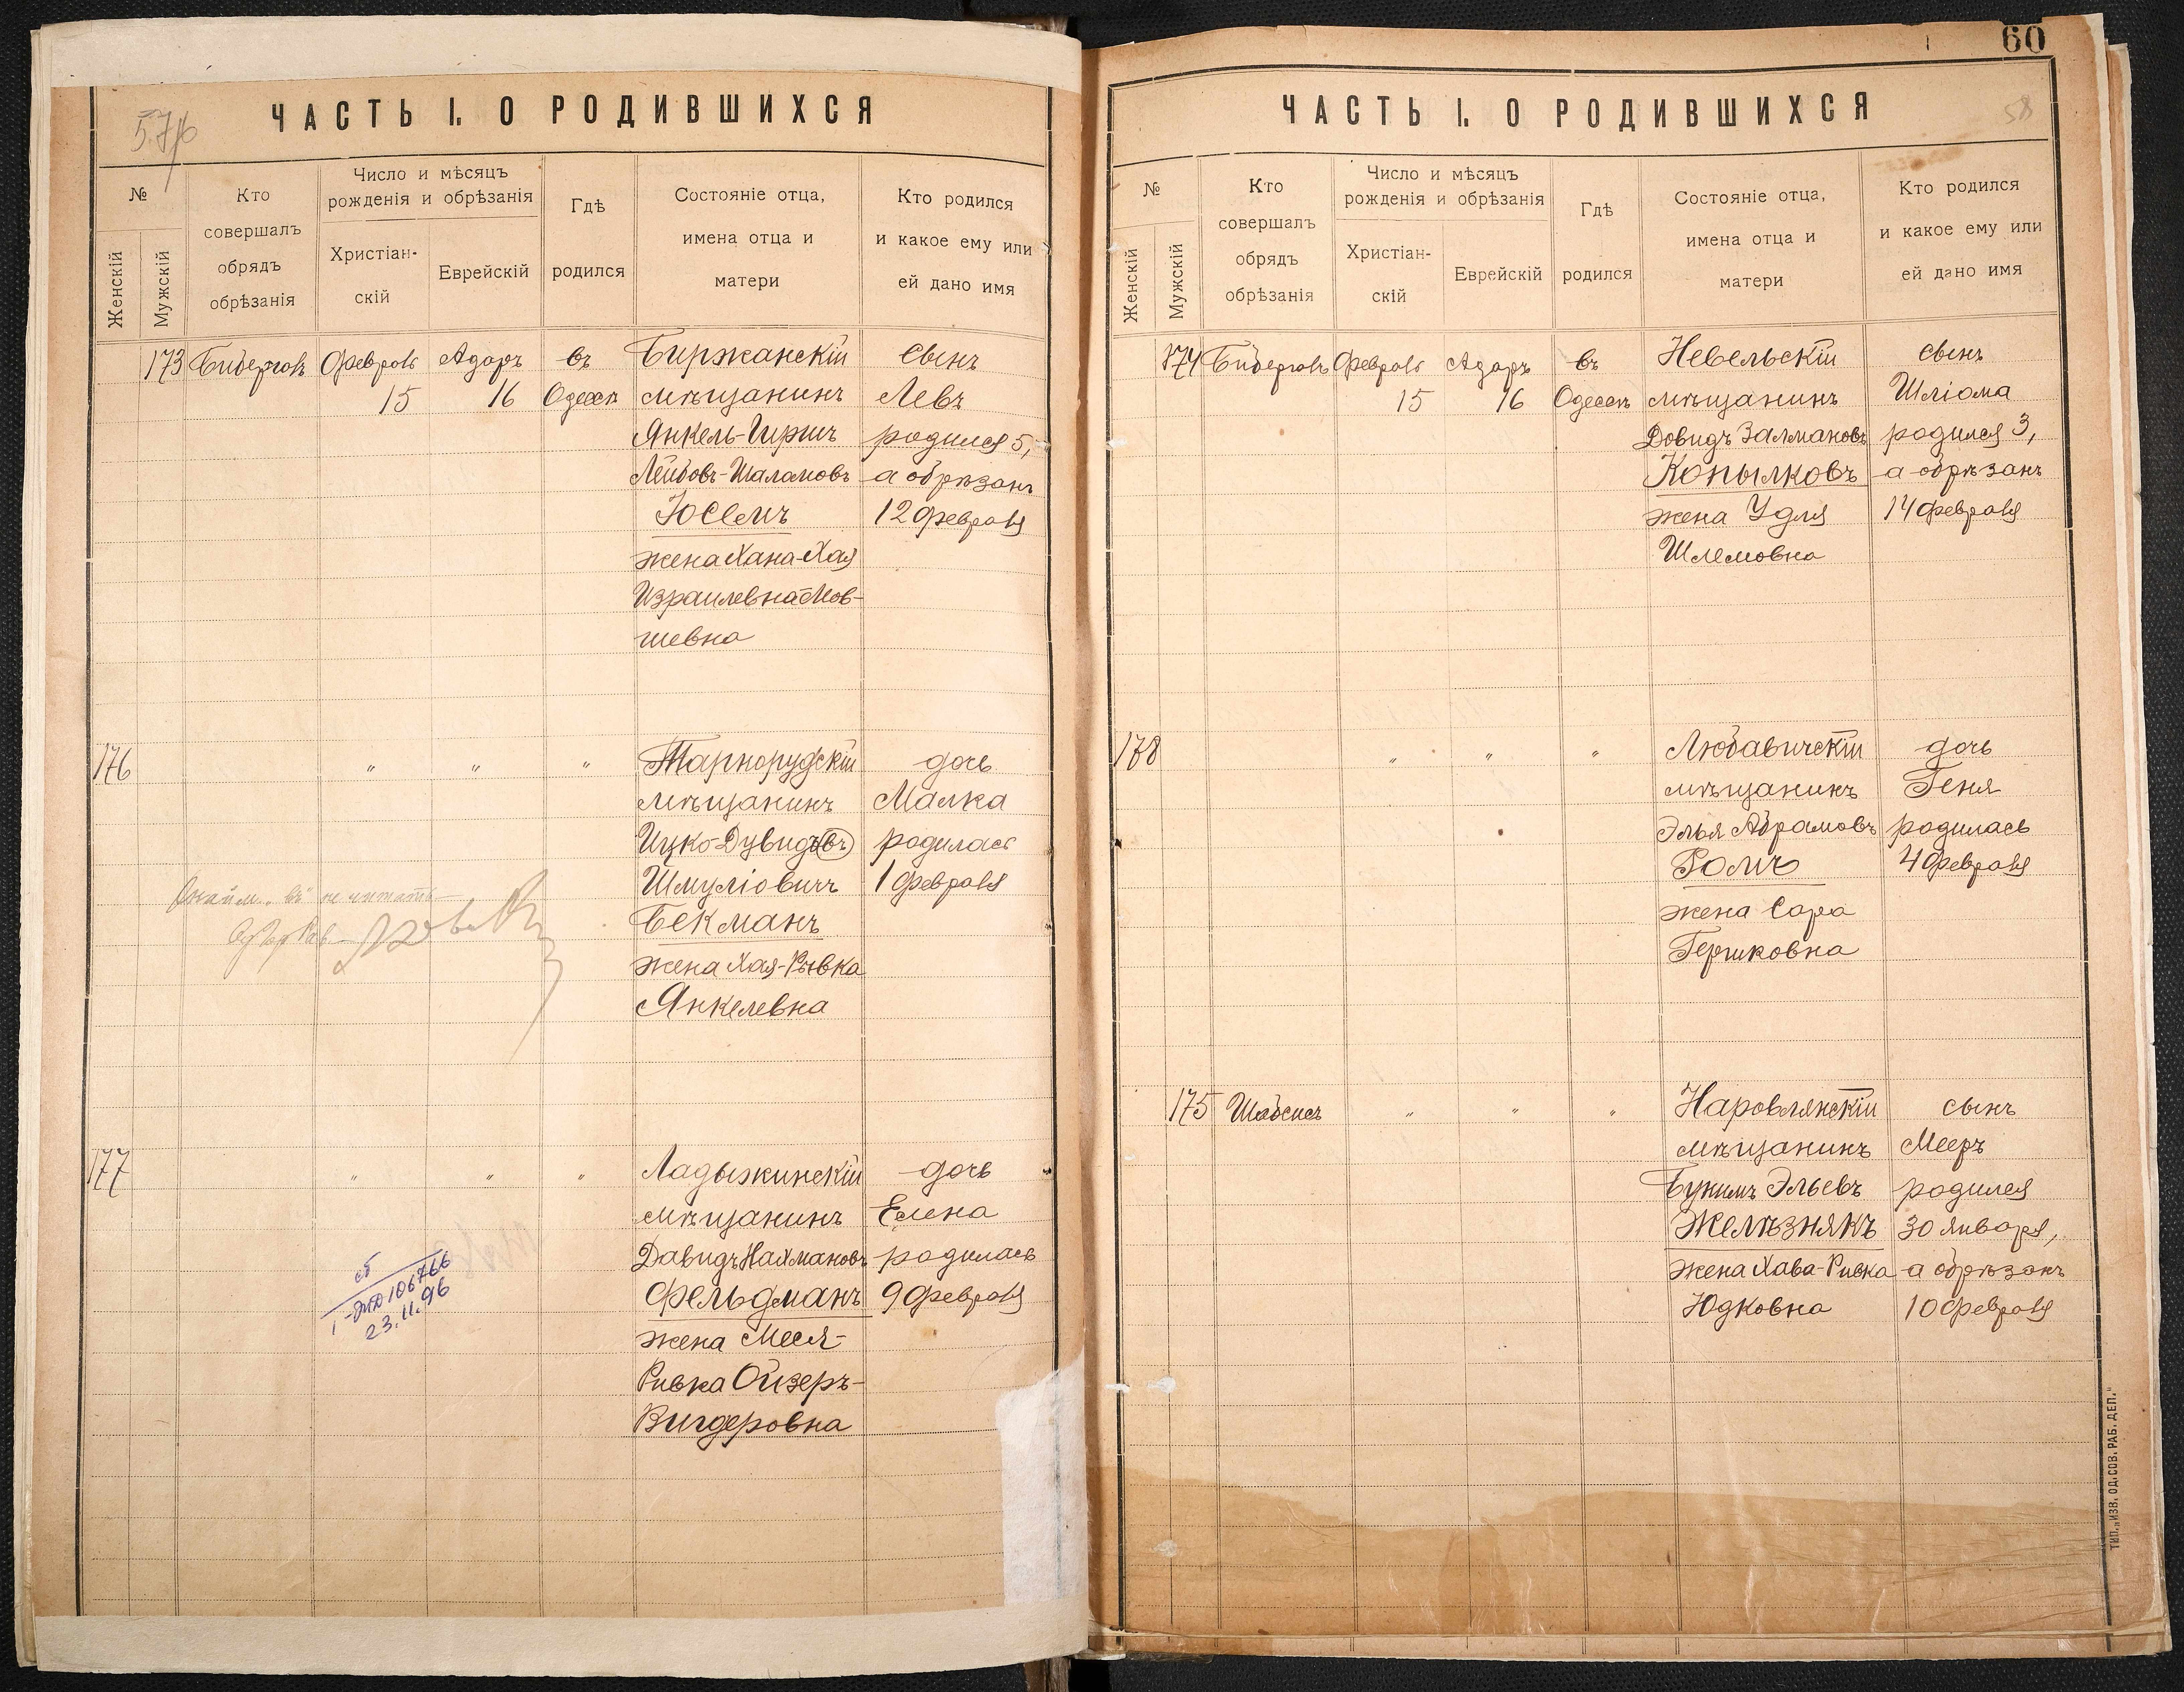 ЧАСТЬ I. О РОДИВШИХСЯ
№
Женскій
Мужскій
Кто
совершалъ
обрядъ
обрѣзанія
Число и мѣсяцъ
рожденія и обрѣзанія
Христіан-
скій
Еврейскій
Гдѣ
родился
Состояніе отца,
имена отца и
матери
Кто родился
и какое ему или
ей дано имя
173
Февраль
15
Адаръ
16
въ
Одессѣ
Биржанскій
мѣщанинъ
Янкель-Гиршъ
Лейбовъ-Шаламовъ
Іоселъ
жена Хана-Хая
Израилевна-Мов-
шевна
сынъ
Левъ
родился 5,
а обрѣзанъ
12 февраля
176
"
"
"
Тарнорудскій
мѣщанинъ
Ицко-Дувидъ въ
Шмуліовичъ
Бекманъ
жена Хая-Рывка
Янкелевна
дочь
Малка
родилась
1 февраля
"въ" не читать
177
"
"
"
Ладыжинскій
мѣщанинъ
Давидъ Нахмановъ
Фельдманъ
жена Меся-
Ривка Ойзеръ-
Вигдеровна
дочь
Елена
родилась
9 февраля
106766
23.11.96
60
58
ЧАСТЬ I. О РОДИВШИХСЯ
№
Женскій
Мужскій
Кто
совершалъ
обрядъ
обрѣзанія
Число и мѣсяцъ
рожденія и обрѣзанія
Христіан-
скій
Еврейскій
Гдѣ
родился
Состояніе отца,
имена отца и
матери
Кто родился
и какое ему или
ей дано имя
174
Февраль
15
Адаръ
16
въ
Одессѣ
Невельскій
мѣщанинъ
Довидъ Залмановъ
Копылковъ
жена Удля
Шлемовна
сынъ
Шліома
родился 3,
а обрѣзанъ
14 февраля
178
"
"
"
Любавичскій
мѣщанинъ
Элья Абрамовъ
Ромъ
жена Сара
Гершковна
дочь
Геня
родилась
4 февраля
175
Шабсисъ
"
"
"
Наровлянскій
мѣщанинъ
Бункимъ Эльевъ
Желѣзнякъ
жена Хава-Ривка
Юдковна
сынъ
Мееръ
родился
30 января,
а обрѣзанъ
10 февраля
ТИП. „ИЗВ. ОД. СОВ. РАБ. ДЕП."